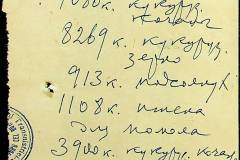 1000к. кукуруз.
качан
8269 к. кукуруз.
зерно
913 к. подсолнух
1108 к. пшена
для помола
3900 к. кукуруз. кача